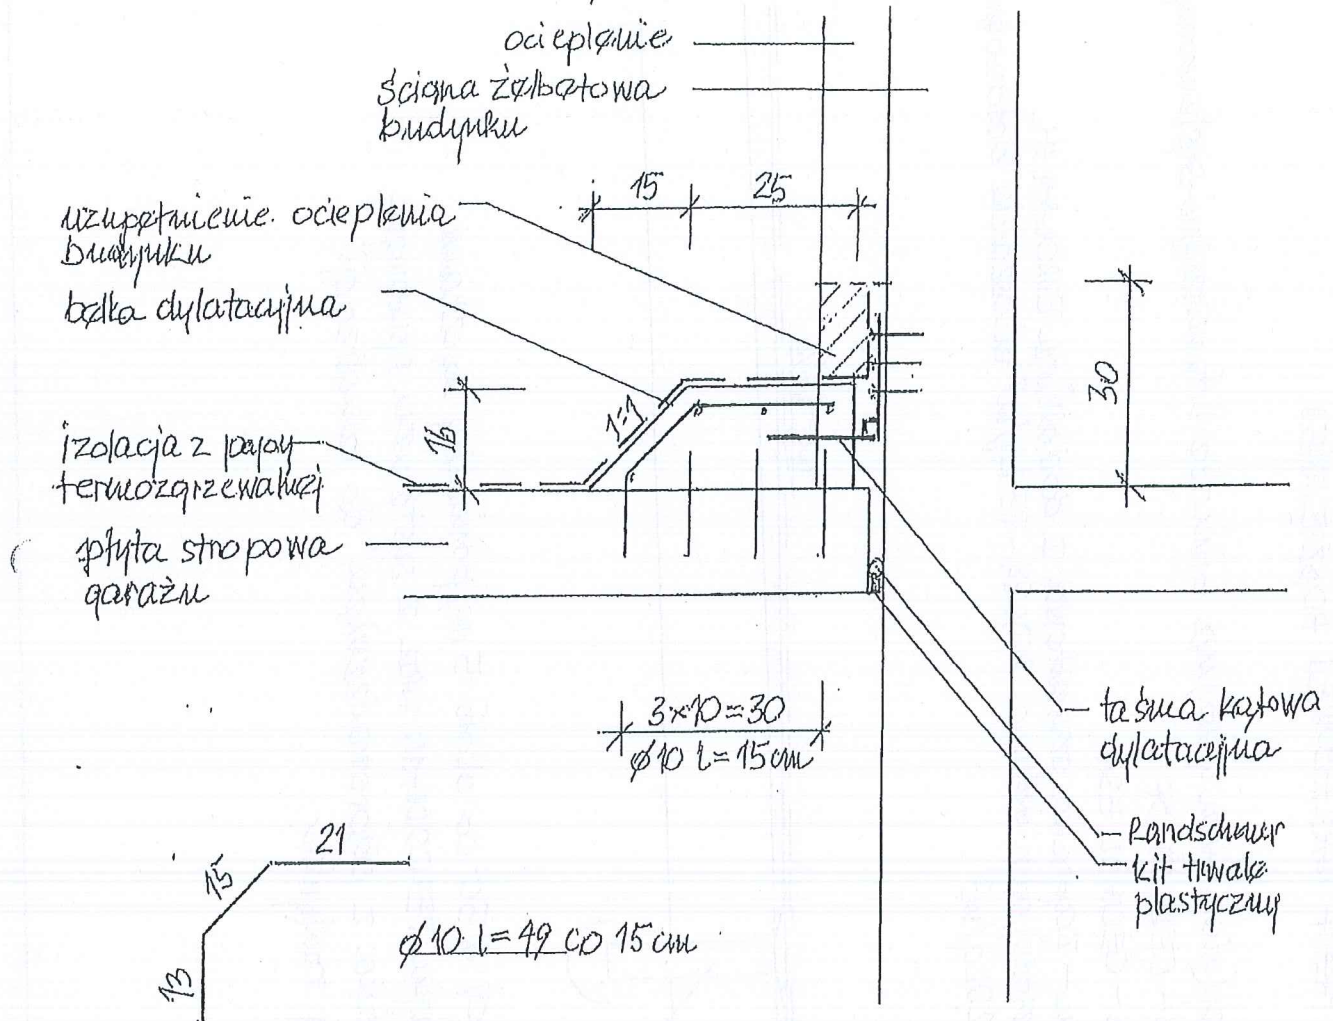 ocieplenie
ściana żelbetowa
budynku
15
25
uzupełnienie ocieplenia
budynku
belka dylatacyjna
30
16
1:1
izolacja z papy
termozgrzewalnej
płyta stropowa
garażu
3x10=30
ø10 l=15cm
taśma kątowa
dylatacyjna
Rundschnur
kit trwale
plastyczny
21
15
13
ø10 l=49 co 15cm